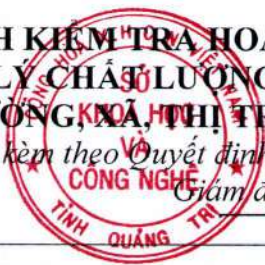 H KIỂM TRA HOẠ
LÝ CHẤT LƯỢNG
ƯỜNG, XÃ, THỊ TR
kèm theo Quyết định
Giám đ
CỘNG HÒA X.H.C.N VIỆT NAM
SỞ
KHOA HỌC
VÀ
CÔNG NGHỆ
TỈNH QUẢNG TRỊ